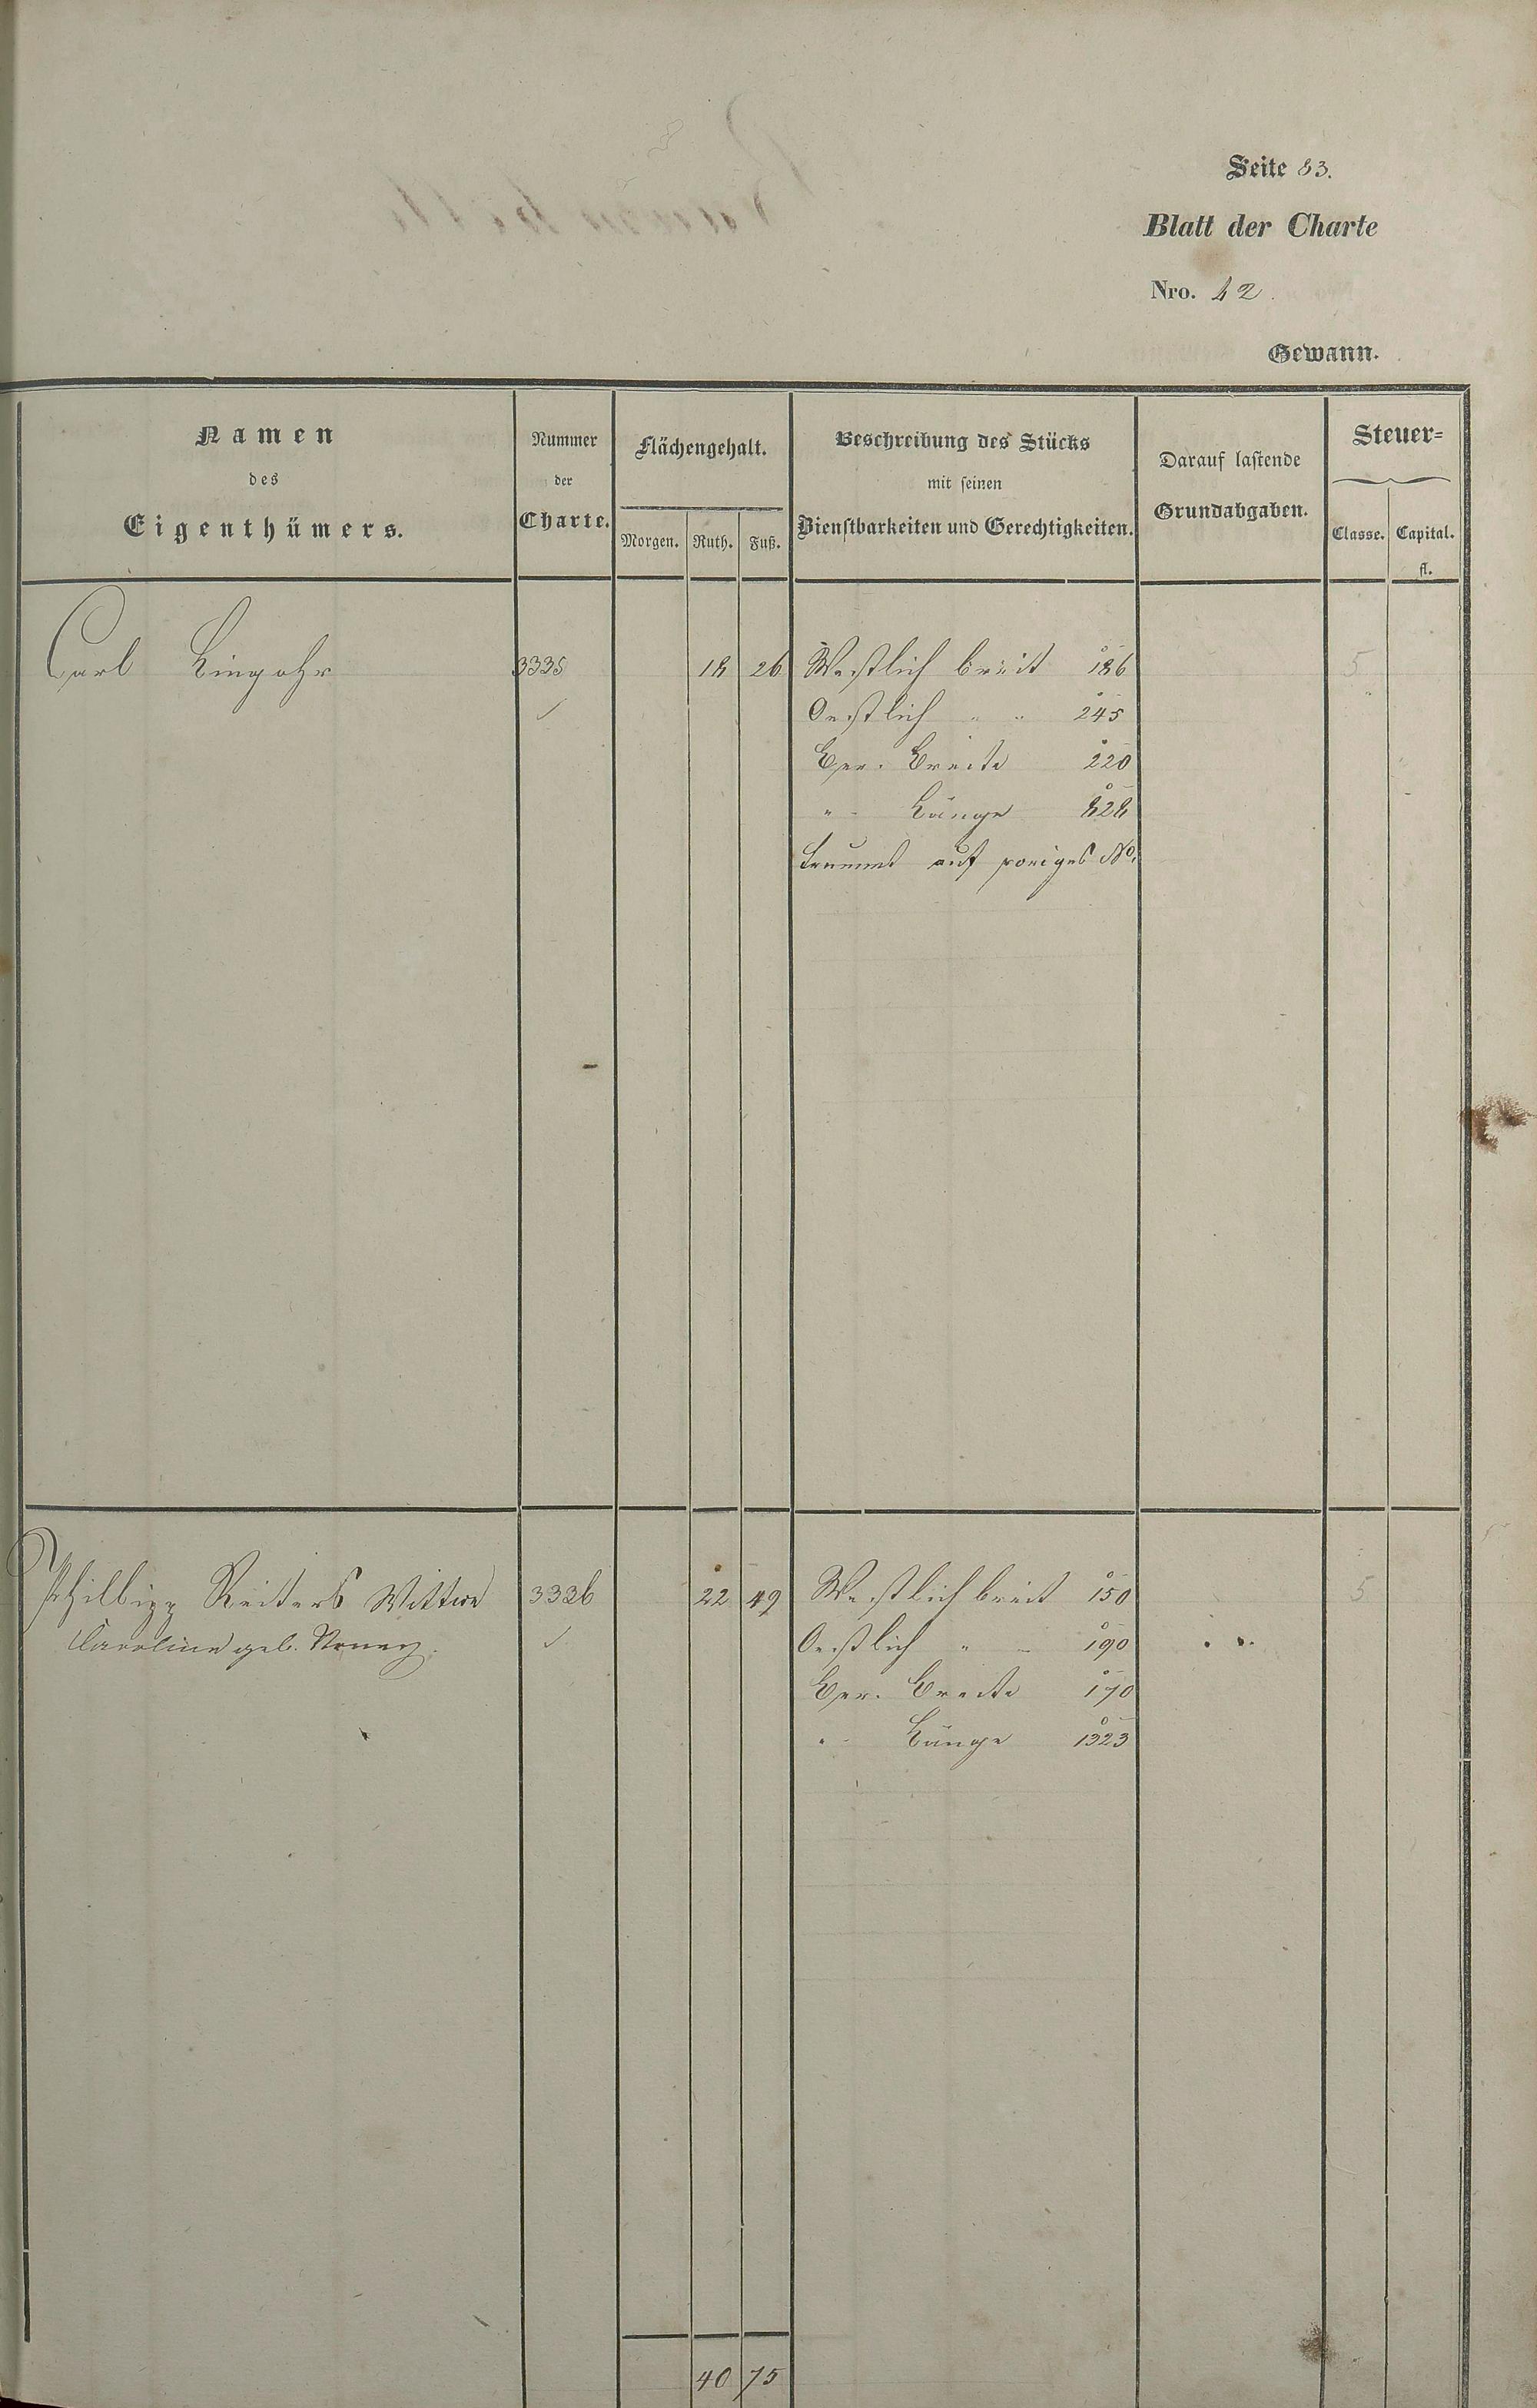 Seite 83.
Blatt der Charte
Nro. 42.
Gewann.
Namen
des
Eigenthümers.
Nummer
der
Charte.
Flächengehalt.
Morgen. Ruth. Fuß.
Beschreibung des Stücks
mit seinen
Dienstbarkeiten und Gerechtigkeiten.
Darauf lastende
Grundabgaben.
Steuer=
Classe. Capital.
fl.
Carl Lingohr 3335 18 26 Westlich breit 186 5
Oestlich " " 245
Ger. Breite 220
" - Länge 828
auf voriges No.
Philipp Reiters Wittwe 3336 22 49 Westlich breit 150 5
Caroline geb. Oestlich " - 190
Ger. Breite 170
" - Länge 1323
40 75